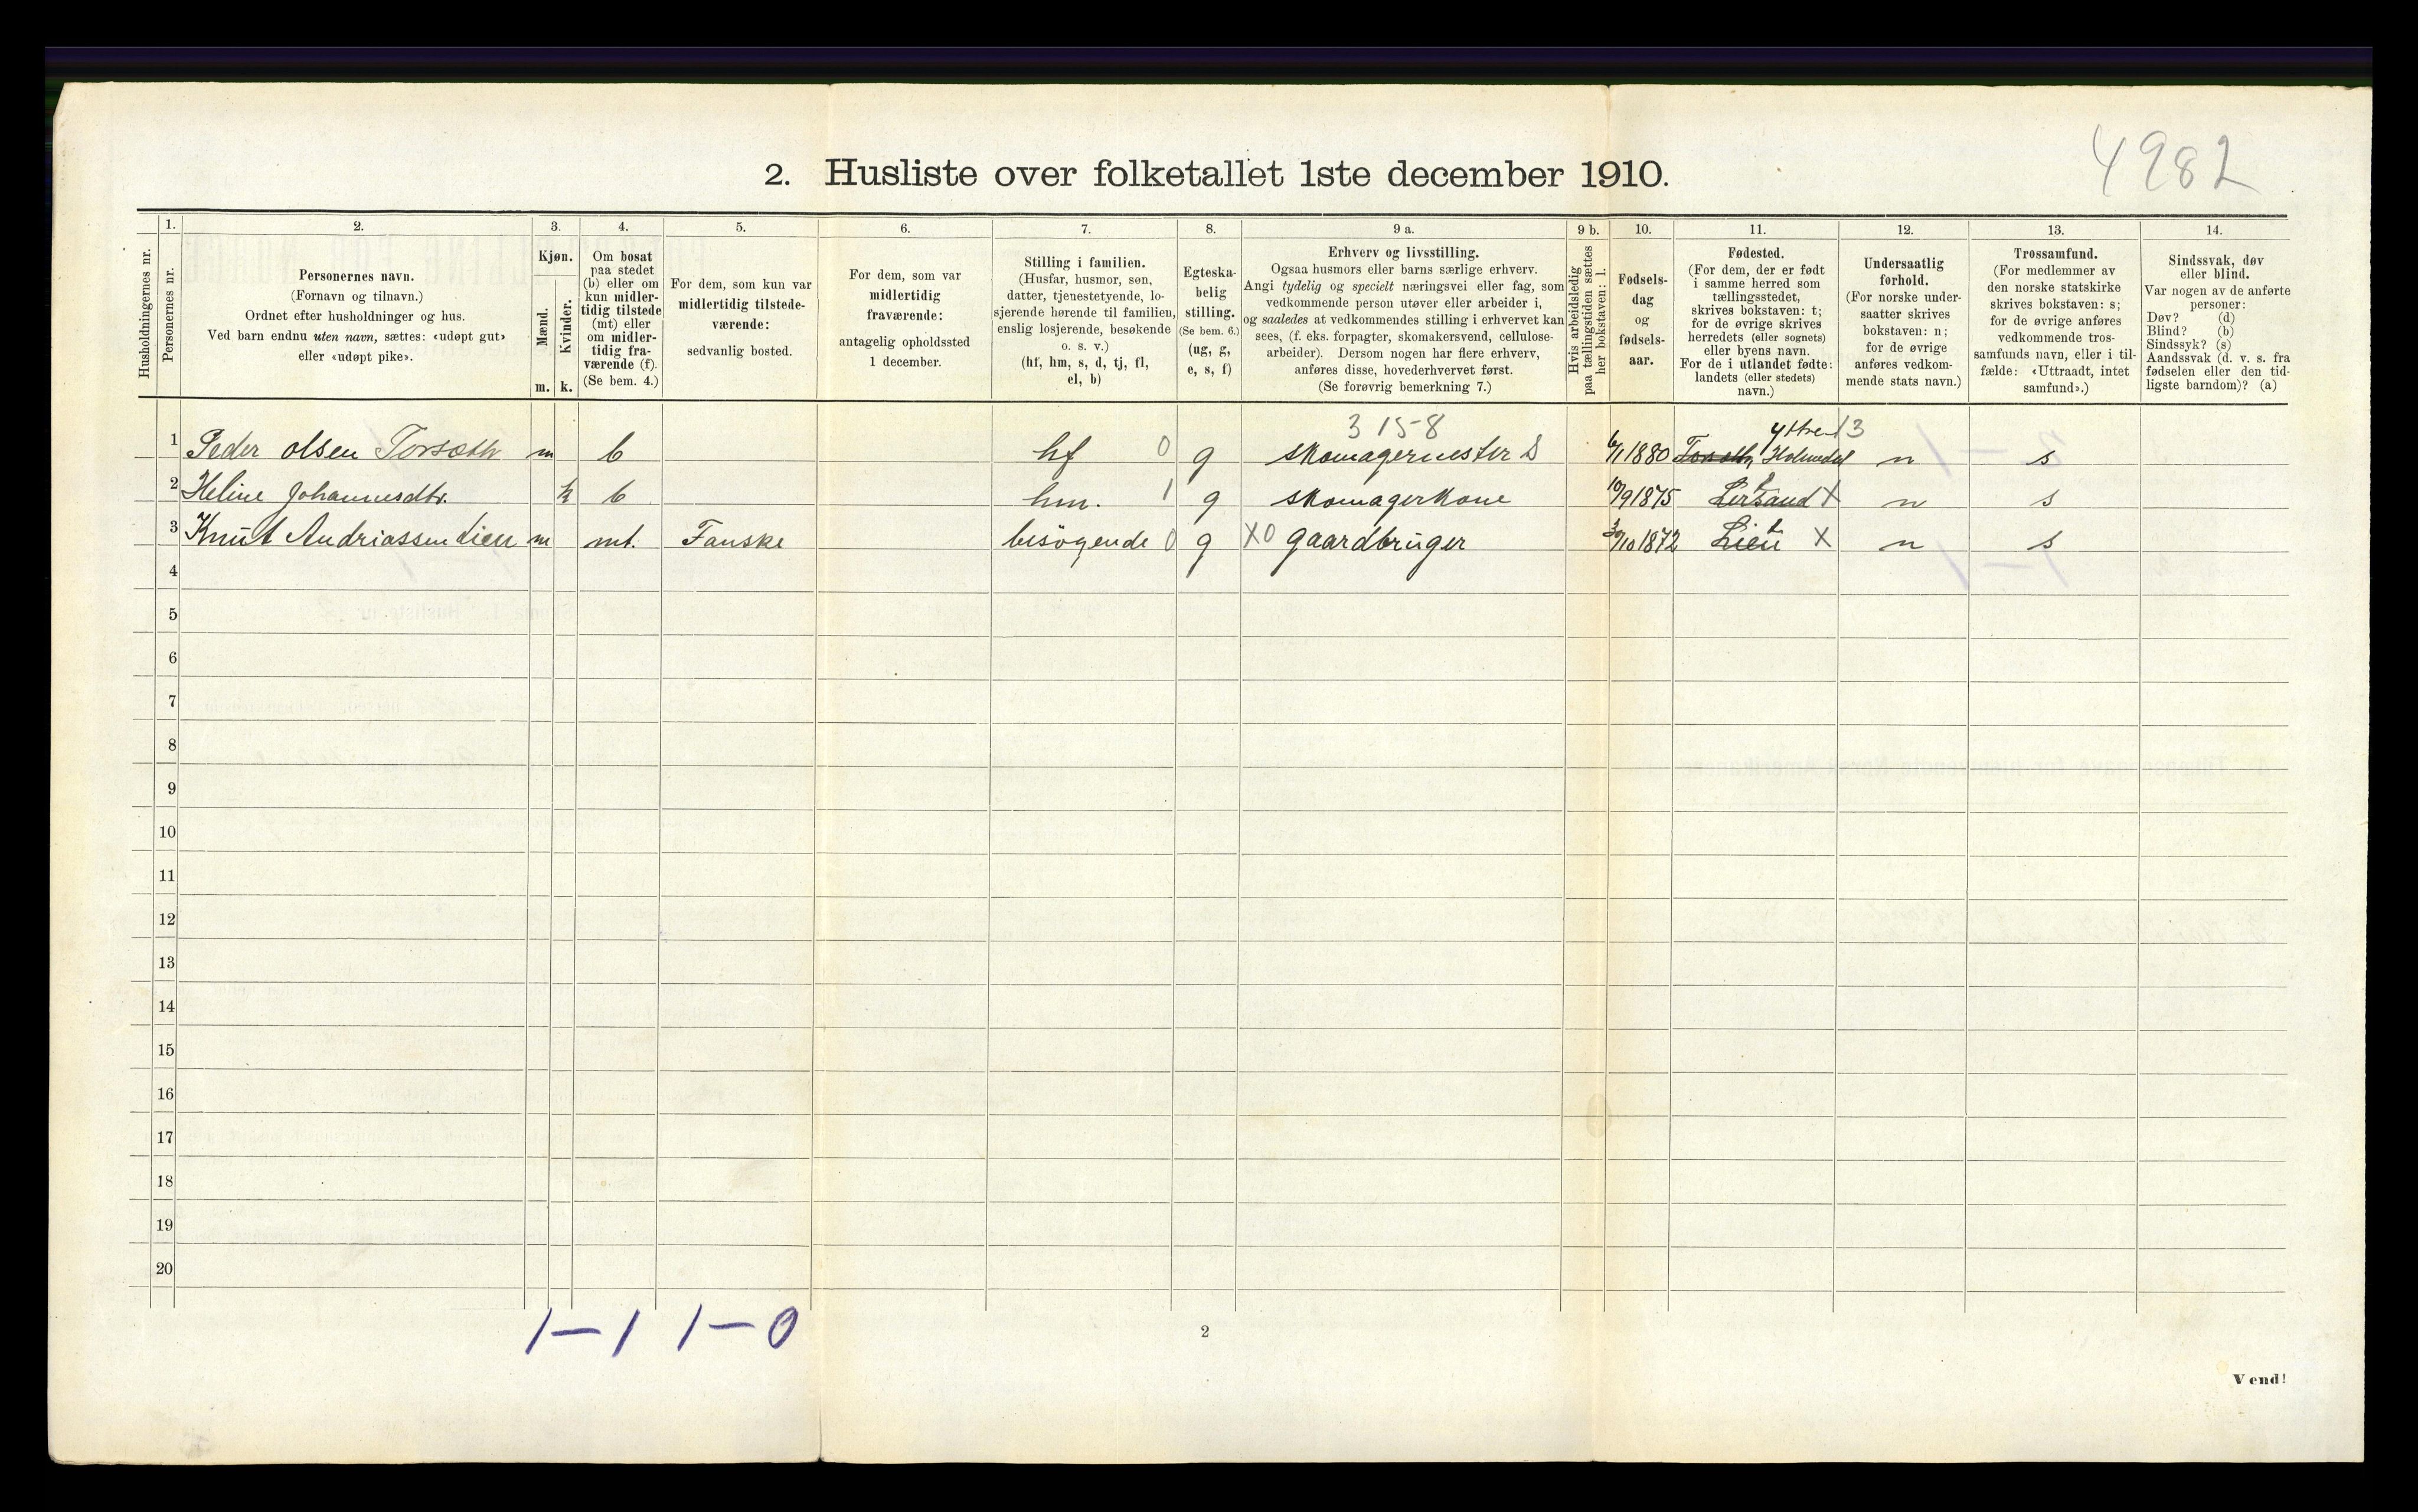 4982
2. Husliste over folketallet 1ste december 1910.
Husholdningernes nr.
1.
Personernes nr.
2.
Personernes navn.
(Fornavn og tilnavn.)
Ordnet efter husholdninger og hus.
Ved barn endnu uten navn, sættes: «udøpt gut»
eller «udøpt pike».
3.
Kjøn.
Mænd.
Kvinder.
m. k.
4.
Om bosat
paa stedet
(b) eller om
kun midler-
tidig tilstede
(mt) eller
om midler-
tidig fra-
værende (f).
(Se bem. 4.)
5.
For dem, som kun var
midlertidig tilstede-
værende:
sedvanlig bosted.
6.
For dem, som var
midlertidig
fraværende:
antagelig opholdssted
1 december.
7.
Stilling i familien.
(Husfar, husmor, søn,
datter, tjenestetyende, lo-
sjerende hørende til familien,
enslig losjerende, besøkende
o. s. v.)
(hf, hm, s, d, tj, fl,
el, b)
8.
Egteska-
belig
stilling.
(Se bem. 6.)
(ug, g,
e, s, f)
9 a.
Erhverv og livsstilling.
Ogsaa husmors eller barns særlige erhverv.
Angi tydelig og specielt næringsvei eller fag, som
vedkommende person utøver eller arbeider i,
og saaledes at vedkommendes stilling i erhvervet kan
sees, (f. eks. forpagter, skomakersvend, cellulose-
arbeider). Dersom nogen har flere erhverv,
anføres disse, hovederhvervet først.
(Se forøvrig bemerkning 7.)
9 b.
Hvis arbeidsledig
paa tællingstiden sættes
her bokstaven: l.
10.
Fødsels-
dag
og
fødsels-
aar.
11.
Fødested.
(For dem, der er født
i samme herred som
tællingsstedet,
skrives bokstaven: t;
for de øvrige skrives
herredets (eller sognets)
eller byens navn.
For de i utlandet fødte:
landets (eller stedets)
navn.)
12.
Undersaatlig
forhold.
(For norske under-
saatter skrives
bokstaven: n;
for de øvrige
anføres vedkom-
mende stats navn.)
13.
Trossamfund.
(For medlemmer av
den norske statskirke
skrives bokstaven: s;
for de øvrige anføres
vedkommende tros-
samfunds navn, eller i til-
fælde: «Uttraadt, intet
samfund».)
14.
Sindssvak, døv
eller blind.
Var nogen av de anførte
personer:
Døv? (d)
Blind? (b)
Sindssyk? (s)
Aandssvak (d. v. s. fra
fødselen eller den tid-
ligste barndom)? (a)
3 15-8
Yttre 13
1 Peder Olsen Torsæth m b hf 0 g skomagermester S 6/1 1880 Holmedal n s
2 Heline Johannesdtr. k b hm. 1 g skomagerkone 10/9 1875 Lersund t X n s
3 Knut Andriassen Lien m mt. Fauske besögende 0 g XO gaardbruger 3/10 1872 Lien t X n s
4
5
6
7
8
9
10
11
12
13
14
15
16
17
18
19
20
1-1 1-0
2
Vend!